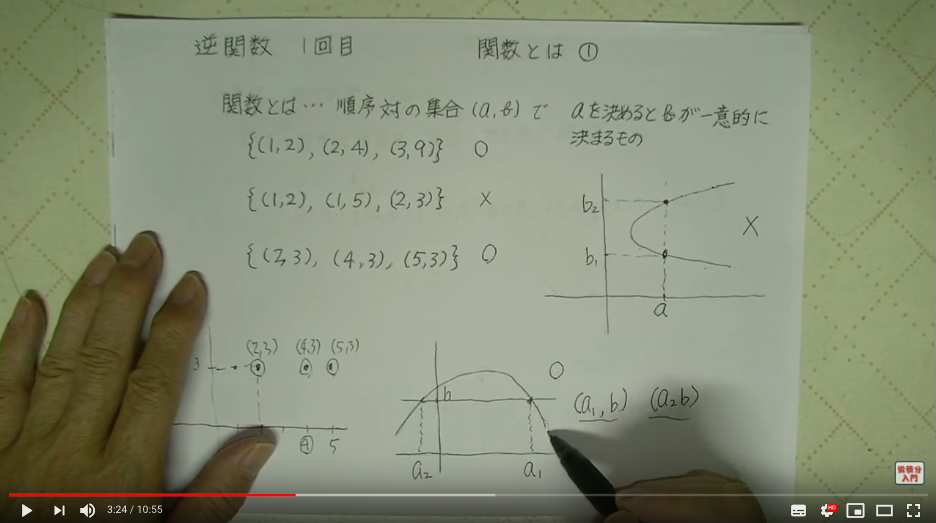 逆関数 1回目
関数とは ①
関数とは… 順序対の集合(a,b)で aを決めるとbが一意的に
決まるもの
{(1,2), (2,4), (3,9)} ○
{(1,2), (1,5), (2,3)} ×
{(2,3), (4,3), (5,3)} ○
b₂
b₁
a
×
(2,3) (4,3) (5,3)
3
④ 5
b
a₂ a₁
○
(a₁,b) (a₂b)
微積分
入門
3:24 / 10:55
HD